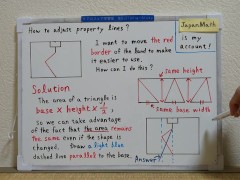 How to adjust property lines?
JapanMath
is my
account!
I want to move the red
border of the land to make
it easier to use.
How can I do this?
Solution
The area of a triangle is
base × height × 1/2,
so we can take advantage
of the fact that the area remains
the same even if the shape is
changed. Draw a light blue
dashed line parallel to the base.
same height
same base width
Answer